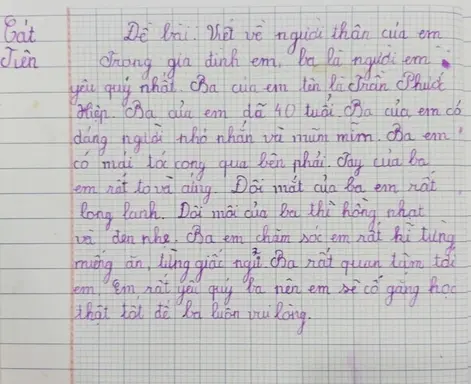 Cát Đề bài: Viết về người thân của em
Tiên Trong gia đình em, ba là người em
yêu quý nhất. Ba của em tên là Trần Phước
Hiệp. Ba của em đã 40 tuổi. Ba của em có
dáng người nhỏ nhắn và mũm mĩm. Ba em
có mái tóc cong qua bên phải. Tay của ba
em rất to và cứng. Đôi mắt của ba em rất
long lanh. Đôi môi của ba thì hồng nhạt
và đen nhẹ. Ba em chăm sóc em rất kĩ từng
miếng ăn, từng giấc ngủ. Ba rất quan tâm tới
em. Em rất yêu quý ba nên em sẽ cố gắng học
thật tốt để ba luôn vui lòng.